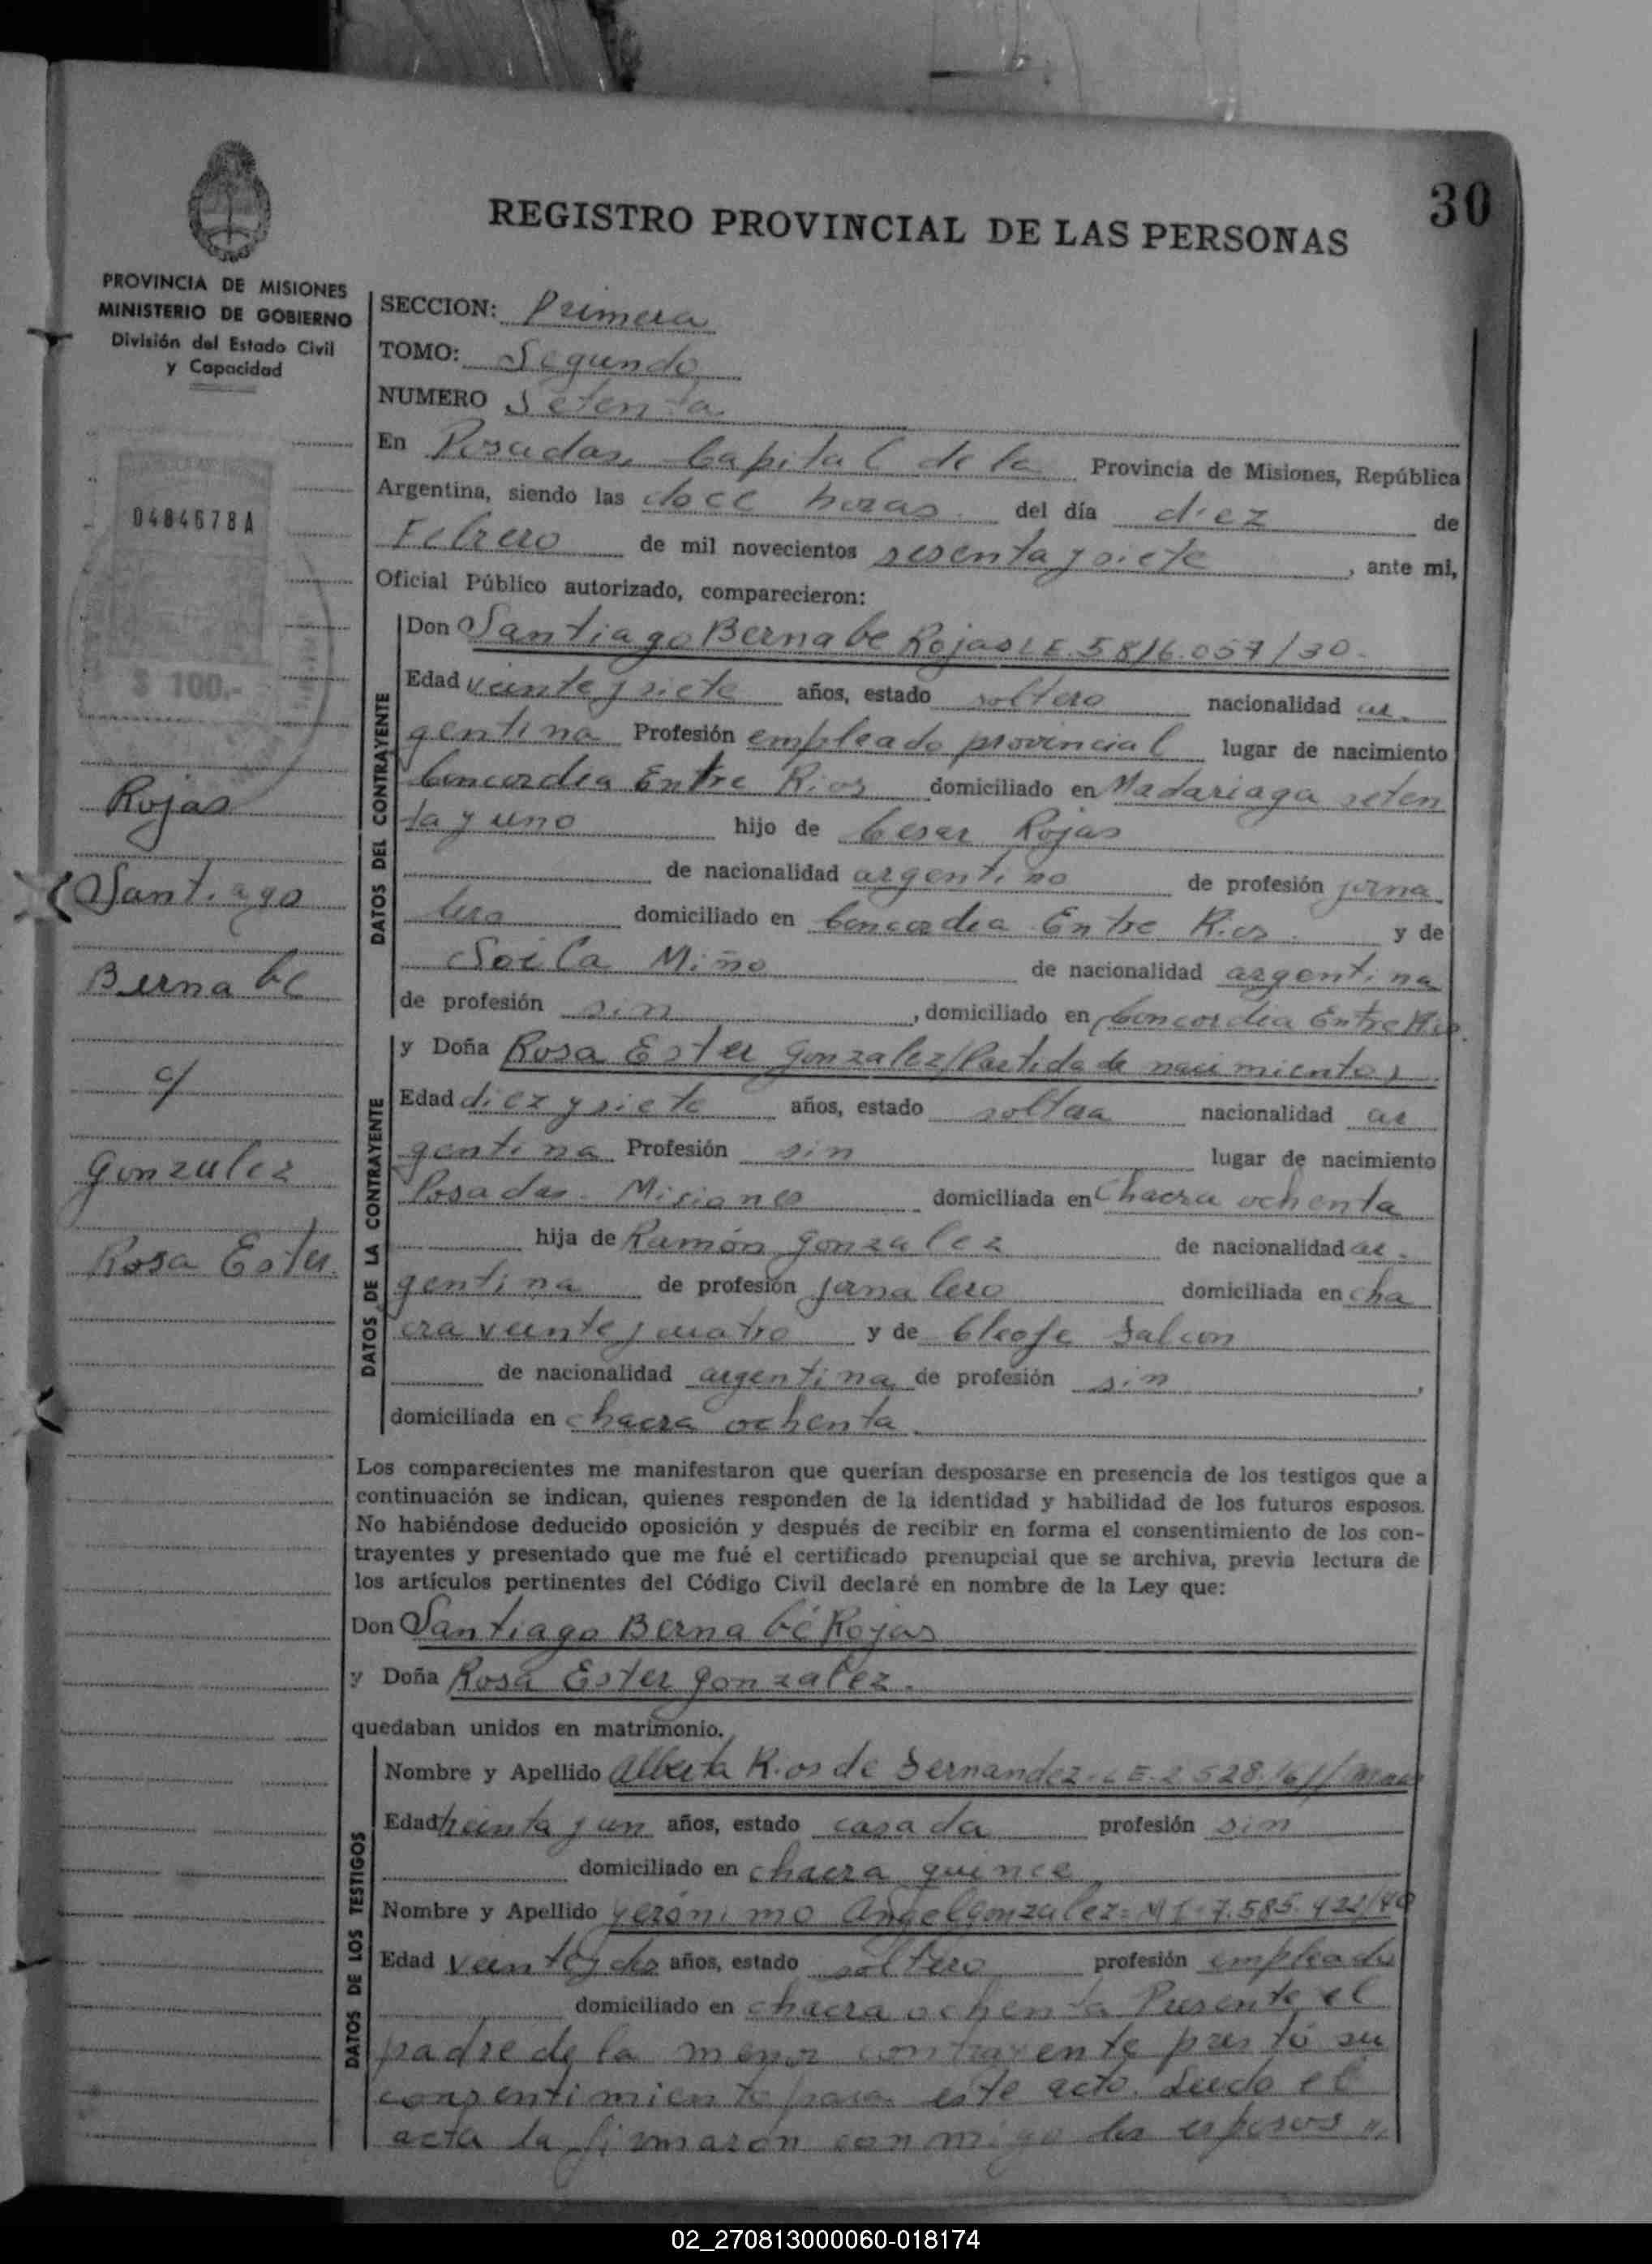 30
REGISTRO PROVINCIAL DE LAS PERSONAS
PROVINCIA DE MISIONES
MINISTERIO DE GOBIERNO
División del Estado Civil
y Capacidad
0484678A
$ 100.-
Rojas
Santiago
Bernabe
c/
Gonzalez
Rosa Ester.
SECCION: Primera
TOMO: Segundo
NUMERO Setenta
En Posadas, Capital de la Provincia de Misiones, República
Argentina, siendo las doce horas del día diez de
Febrero de mil novecientos sesenta y siete, ante mi,
Oficial Público autorizado, comparecieron:
DATOS DEL CONTRAYENTE
Don Santiago Bernabe Rojas L E. 5816.057/30-
Edad veinte y siete años, estado soltero nacionalidad ar-
gentina Profesión empleado provincial lugar de nacimiento
Concordia Entre Rios domiciliado en Madariaga seten
ta y uno hijo de Cesar Rojas
de nacionalidad argentino de profesión jorna
lero domiciliado en Concordia Entre Rios. y de
Soila Miño de nacionalidad argentina
de profesión sin, domiciliado en Concordia Entre Rios.
DATOS DE LA CONTRAYENTE
y Doña Rosa Ester Gonzalez (Partida de nacimiento)
Edad diez y siete años, estado soltera nacionalidad ar
gentina Profesión sin lugar de nacimiento
Posadas - Misiones domiciliada en Chacra ochenta
hija de Ramón Gonzalez de nacionalidad ar-
gentina de profesión jornalero domiciliada en cha
cra veinte y cuatro y de Cleofe
de nacionalidad argentina de profesión sin,
domiciliada en chacra ochenta.
Los comparecientes me manifestaron que querían desposarse en presencia de los testigos que a
continuación se indican, quienes responden de la identidad y habilidad de los futuros esposos.
No habiéndose deducido oposición y después de recibir en forma el consentimiento de los con-
trayentes y presentado que me fué el certificado prenupcial que se archiva, previa lectura de
los artículos pertinentes del Código Civil declaré en nombre de la Ley que:
Don Santiago Bernabé Rojas
y Doña Rosa Ester Gonzalez.
quedaban unidos en matrimonio.
DATOS DE LOS TESTIGOS
Nombre y Apellido Alberta Rios de Fernandez - L E. 2.528.
Edad treinta y un años, estado casada profesión sin
domiciliado en chacra quince
Nombre y Apellido Yerónimo Angel Gonzalez = M I - 7.585.422/40
Edad veinte y dos años, estado soltero profesión empleado
domiciliado en chacra ochenta Presente el
padre de la menor contrayente prestó su
consentimiento para este acto. Leida el
acta la firmaron conmigo los esposos
02_270813000060-018174